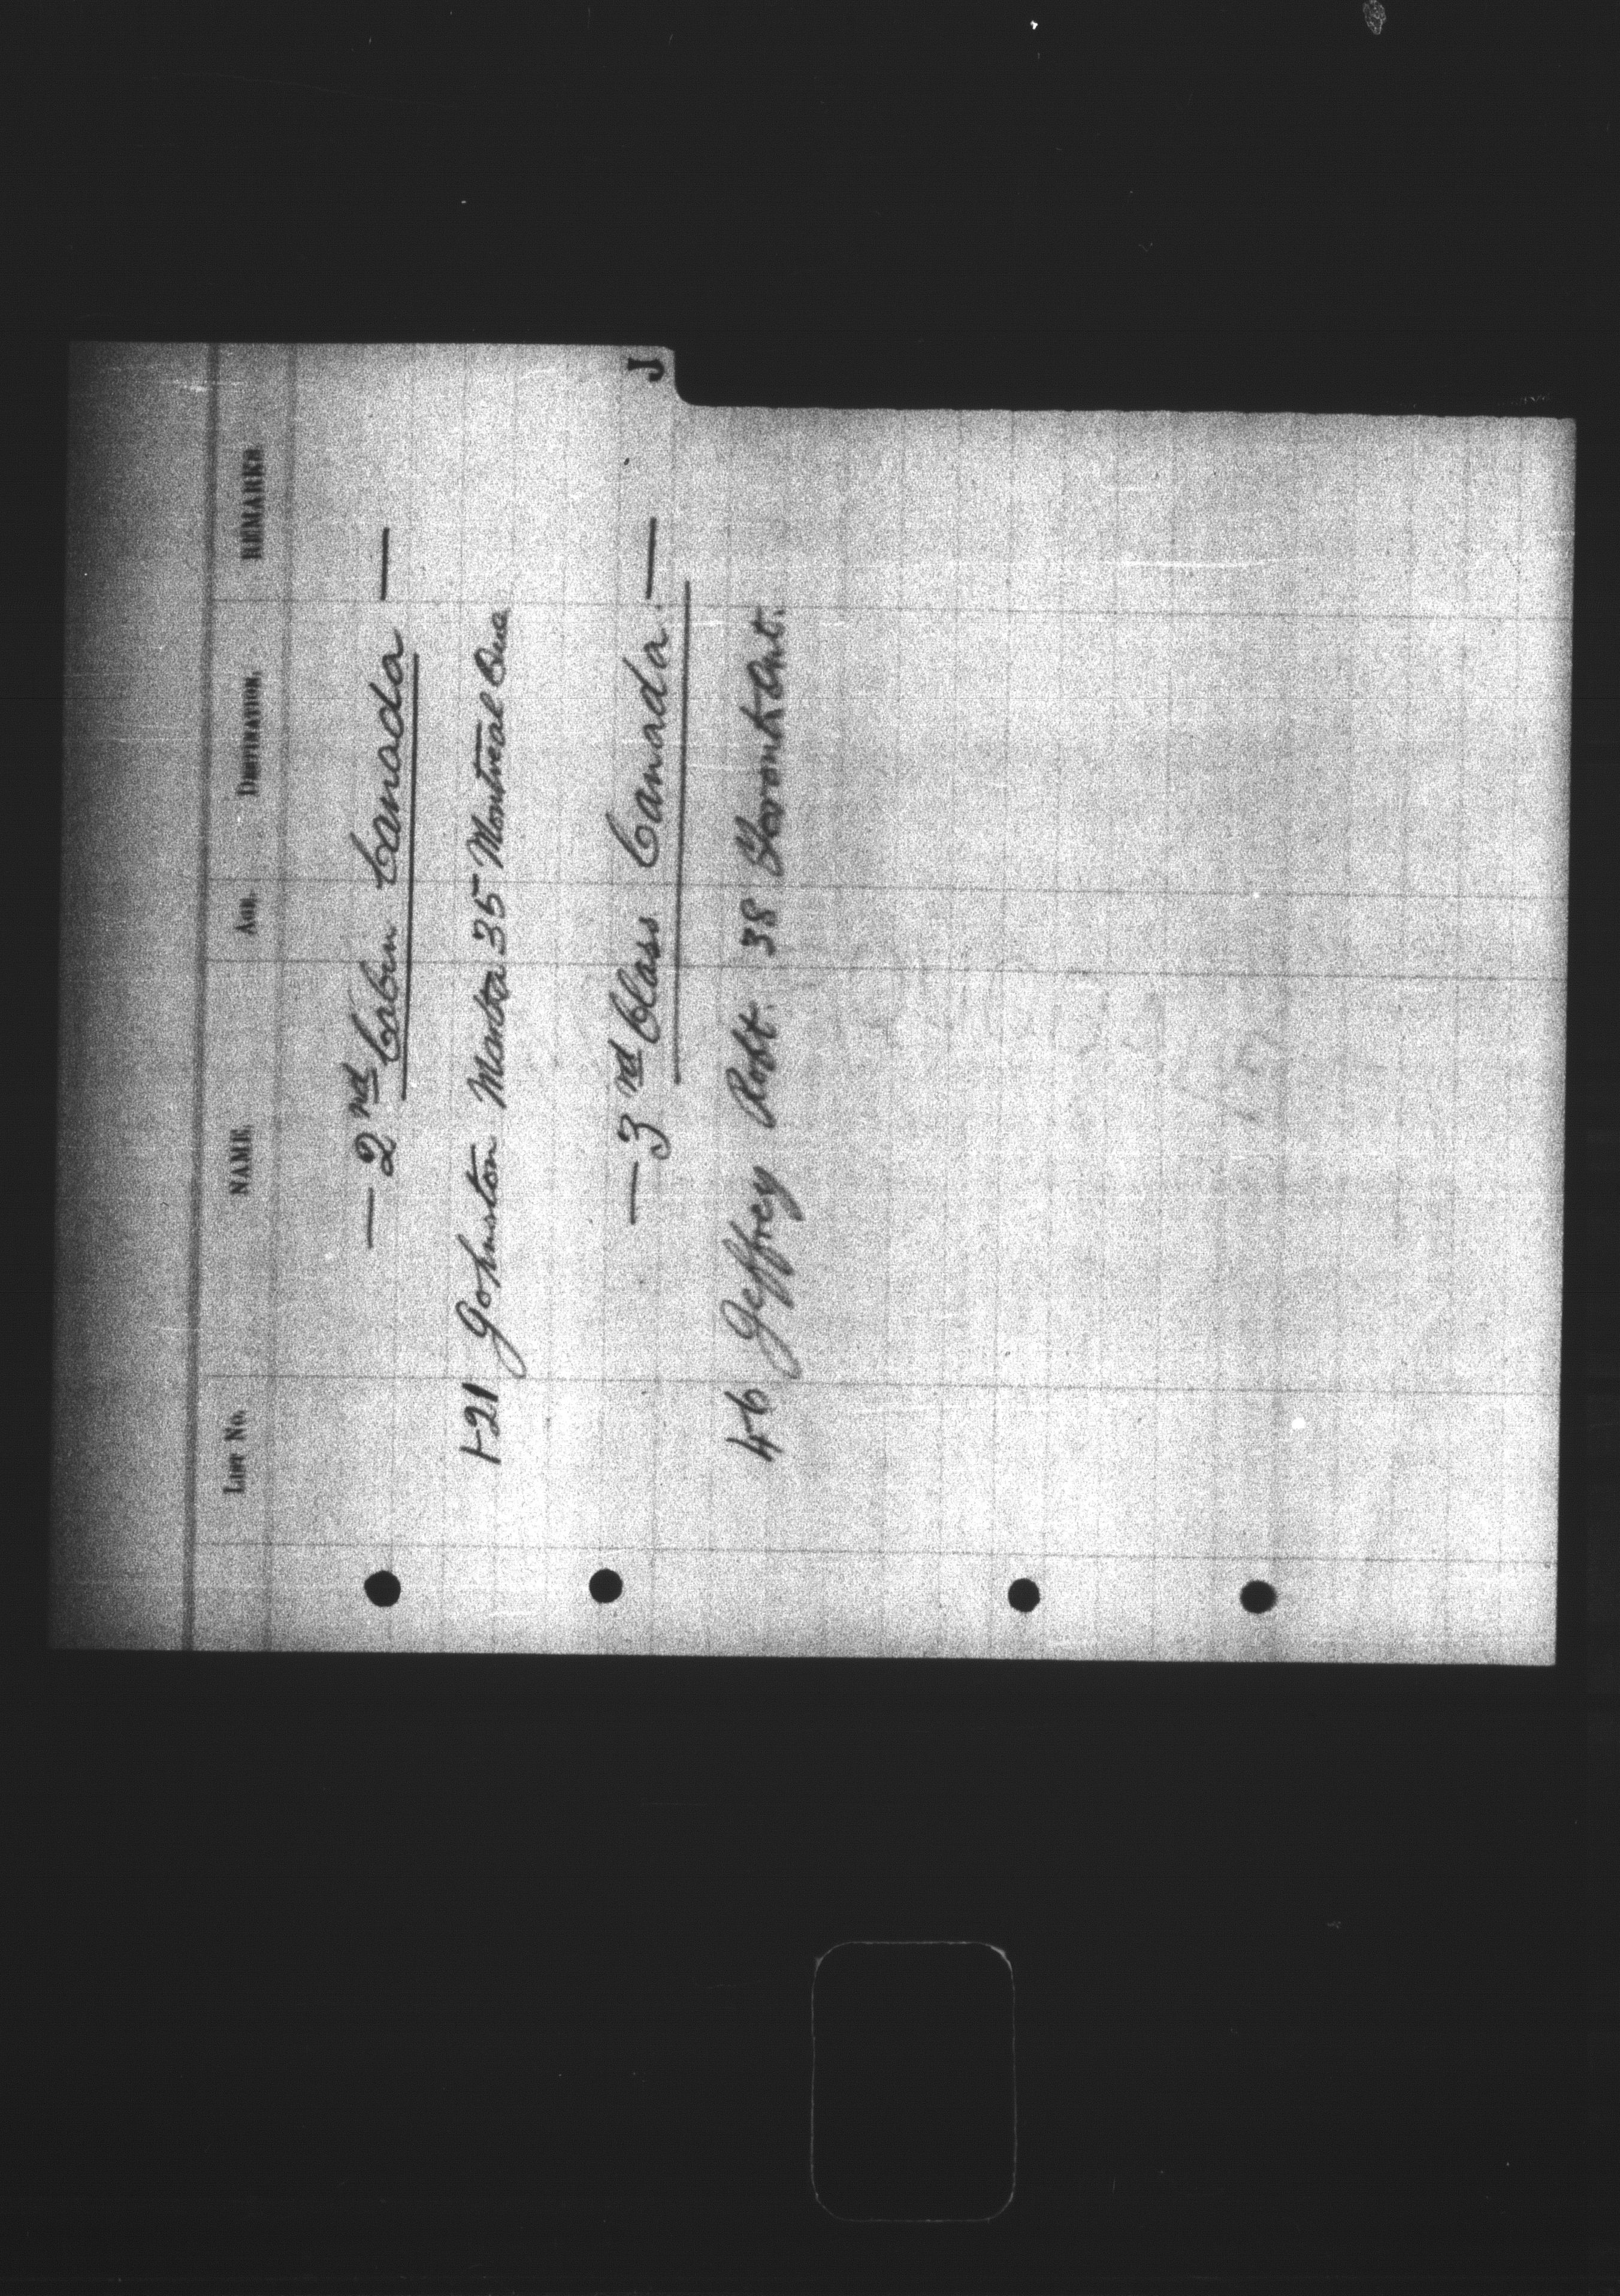 List No. NAME. Age. Destination. REMARKS.
— 2nd Cabin Canada —
1-21 Johnston 35 Montreal Que
J
— 3rd Class Canada. —
46 Jeffrey Robt. 38 Toronto Ont.